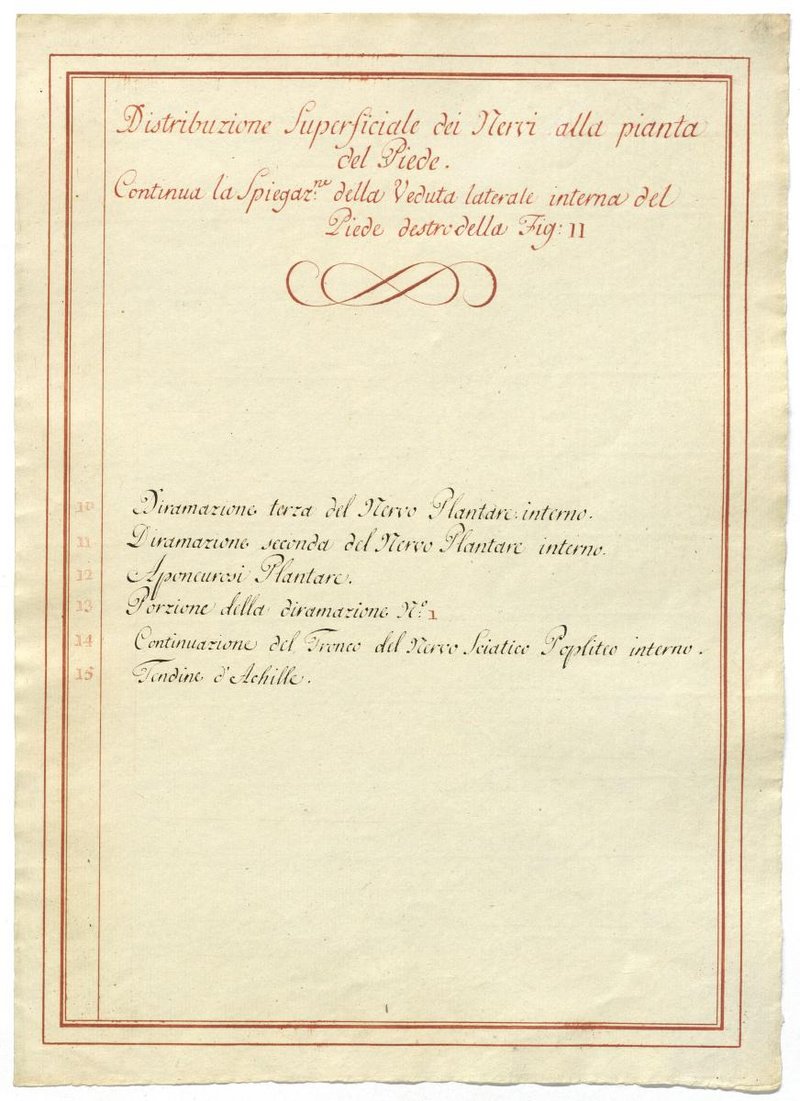 Distribuzione Superficiale dei Nervi alla pianta
del Piede.
Continua la Spiegaz.ne della Veduta laterale interna del
Piede destro della Fig: 11
10 Diramazione terza del Nervo Plantare interno.
11 Diramazione seconda del Nervo Plantare interno.
12 Aponeurosi Plantare.
13 Porzione della diramazione N.º 1
14 Continuazione del Tronco del Nervo Sciatico Popliteo interno.
15 Tendine d'Achille.